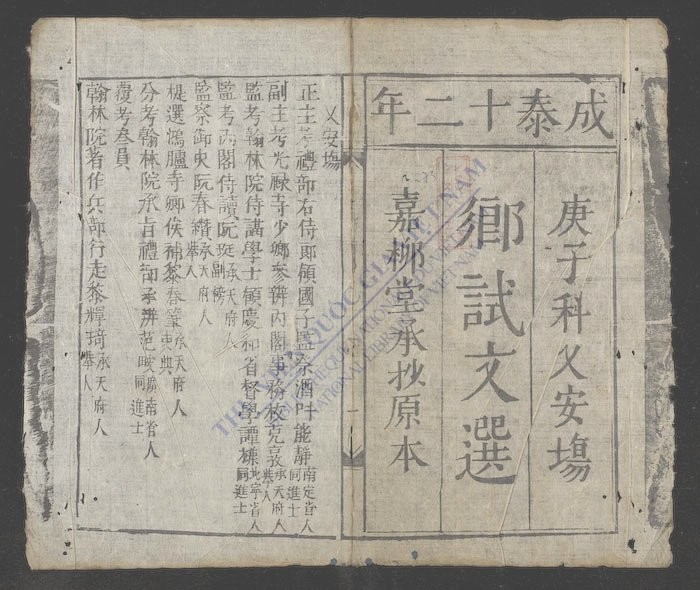 成泰十二年
庚子科乂安塲
鄉試文選
嘉柳堂承抄原本
乂安塲
正主考禮部右侍郎領國子監祭酒叶能靜南定省人同進士
副主考光祿寺少卿參辦內閣事務枚克敦承天府人舉人
監考翰林院侍講學士領慶和省督學譚㯋北寧省人同進士
監考內閣侍讀阮珽承天府人副榜
監察御史阮春纘承天府人舉人
提選鴻臚寺卿候補黎春
分考翰林院承旨禮部承辨范畯廣南省人同進士
覆考叁員
翰林院著作兵部行走黎輝琦承天府人舉人
THƯ VIỆN QUỐC GIA VIỆT NAM
BIBLIOTHEQUE NATIONALE DU VIETNAM
NATIONAL LIBRARY OF VIETNAM